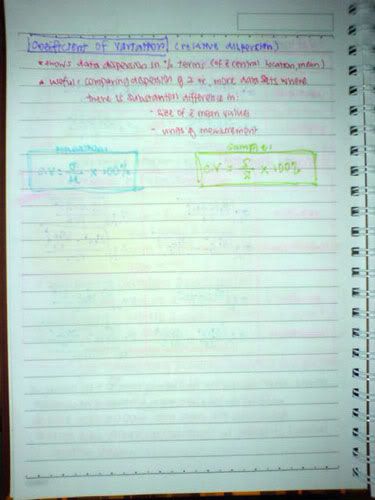 Coefficient of Variation (relative dispersion)
* shows data dispersion in % terms (of z central location, mean)
* useful: comparing dispersion of 2 or more data sets where
there is substantial difference in:
- size of z mean values
- units of measurement
Population: Sample:
C.V = σ/μ × 100% C.V = s/x̄ × 100%